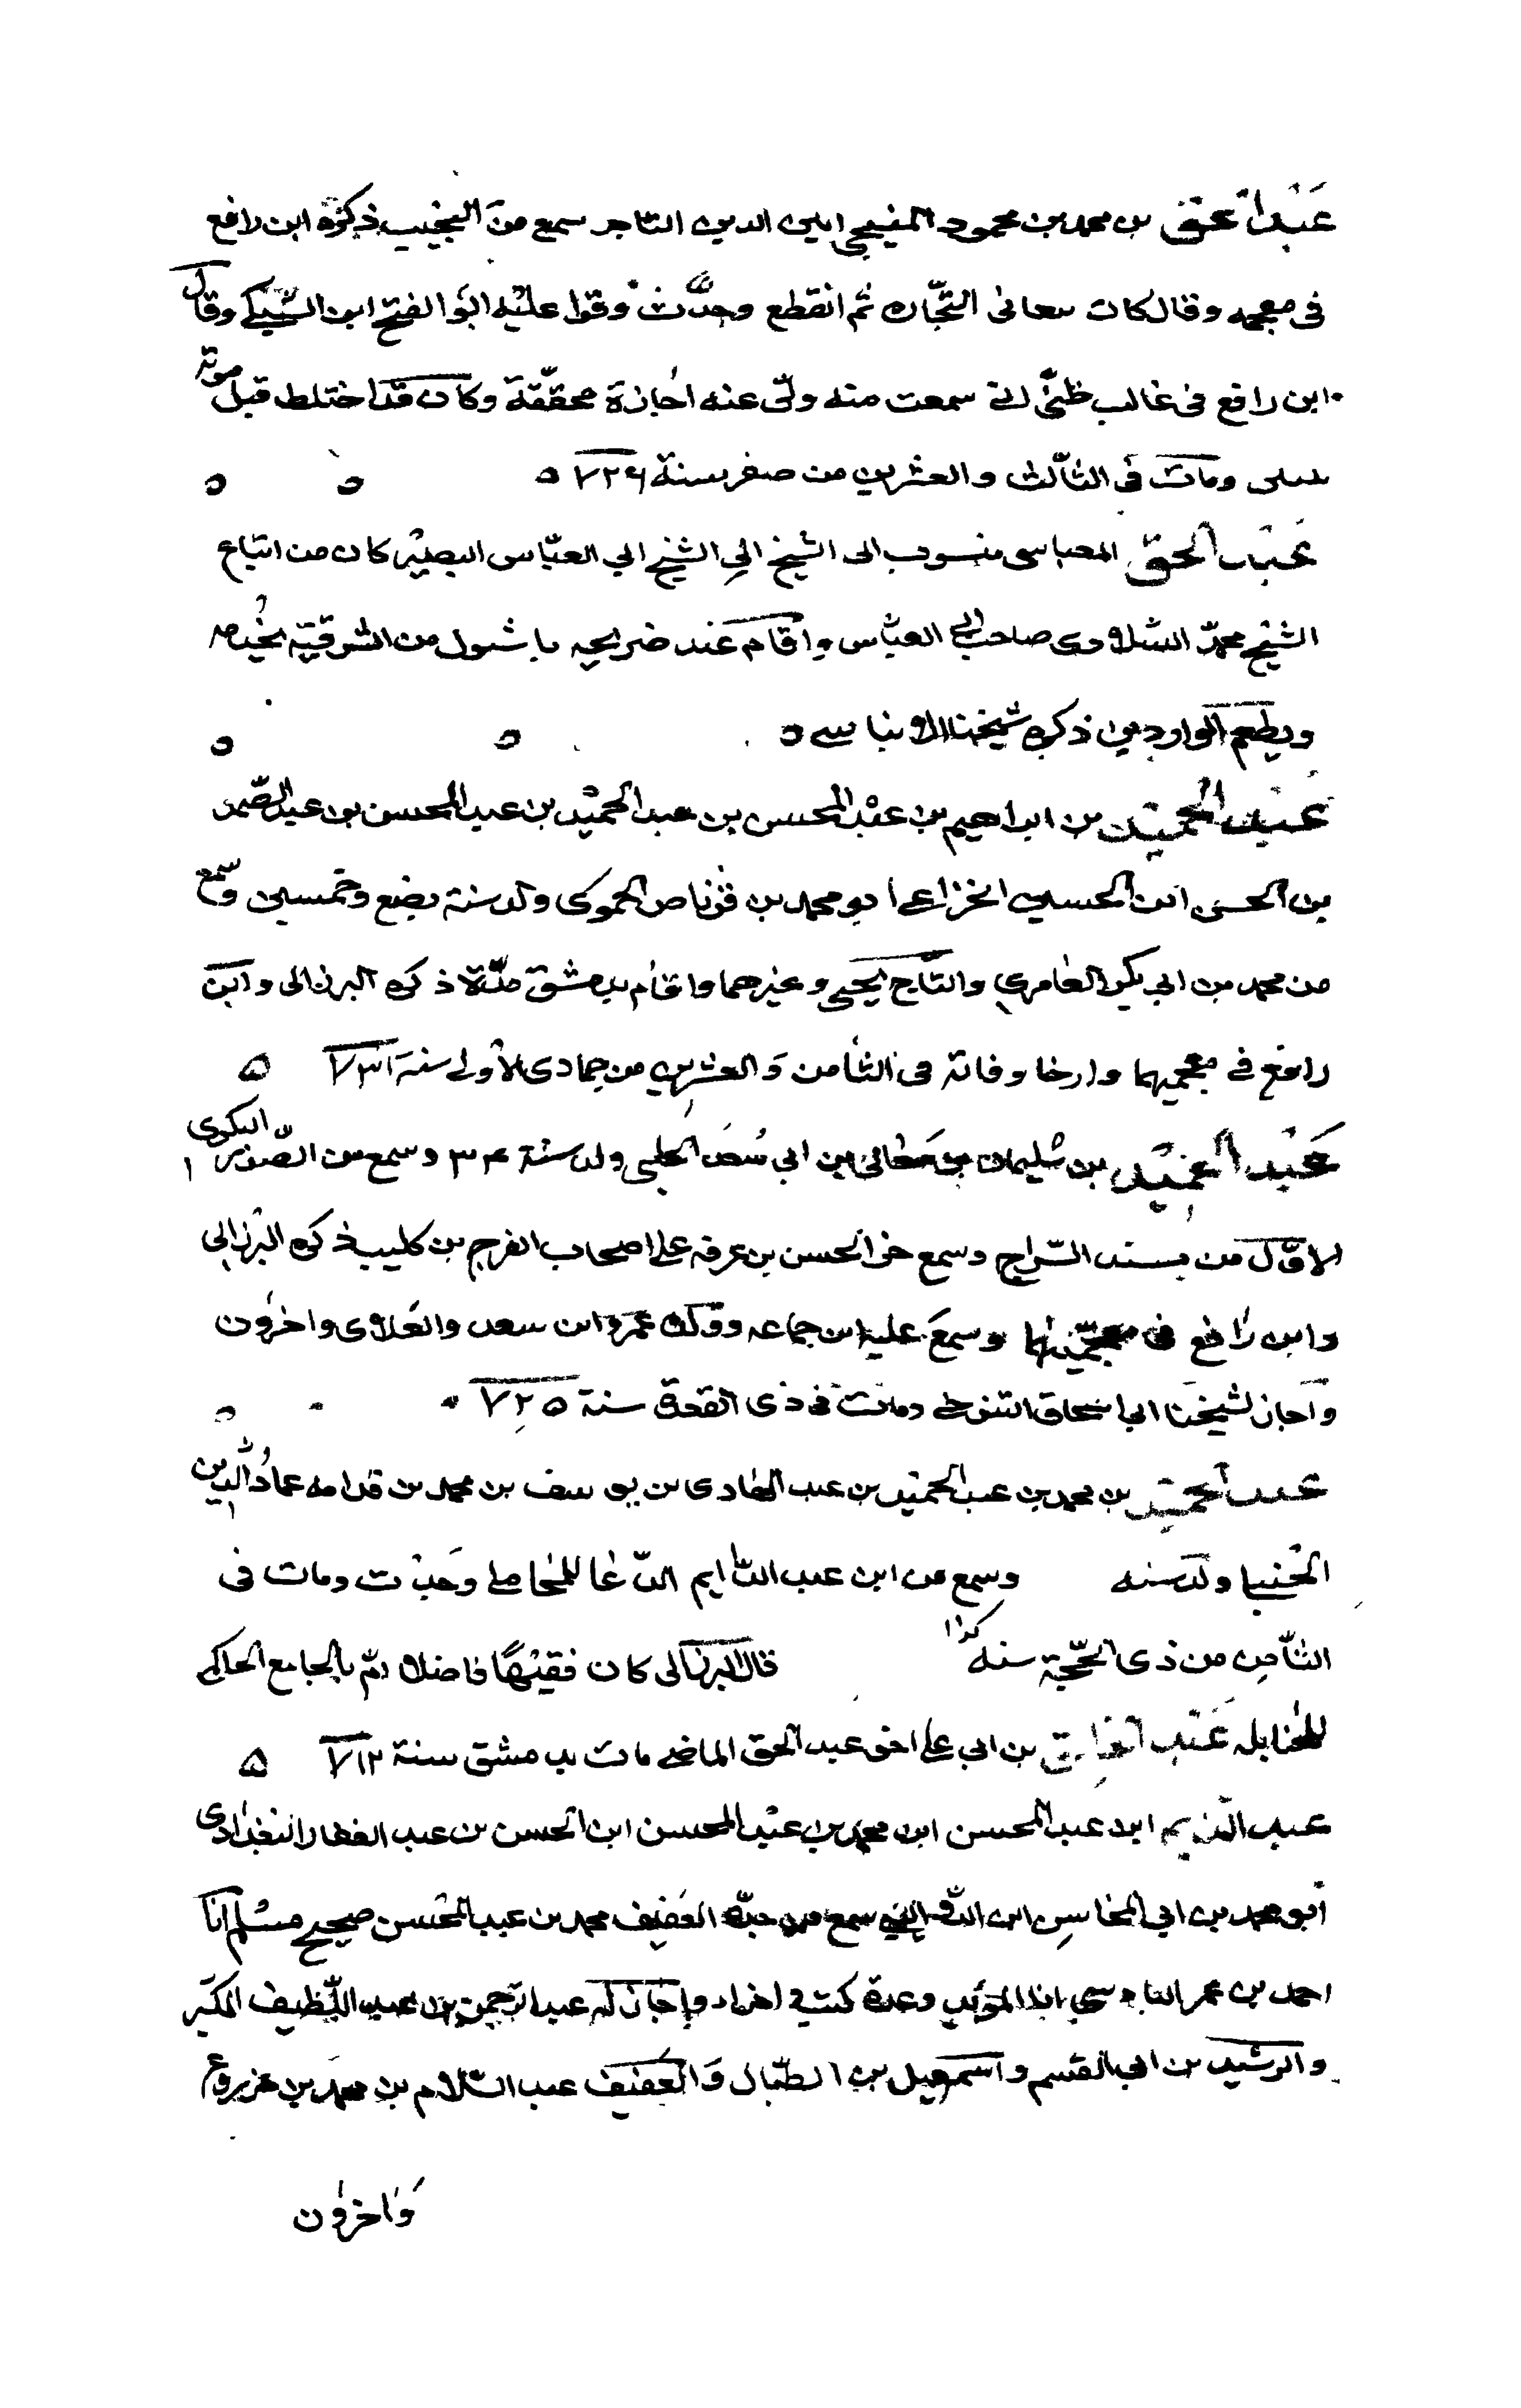 عبد الحق بن محمد بن محمود المنبجي امين الدين التاجر سمع من النجيب ذكره ابن رافع
في معجمه وقال كان يعاني التجاره ثم انقطع وحدّث وقرا عليه ابو الفتح ابن السبكي وقال
ابن رافع في غالب ظنّي اني سمعت منه ولي عنه اجازة محققة وكان قد اختلط قبل موته
ومات في الثالث والعشرين من صفر سنة ٧٢٤
عبد الحق العباسي منسوب الى الشيخ ابي الشيخ ابي العبّاس البصير كان من اتباع
الشيخ محمد السلاوي صاحب ابي العبّاس واقام عند ضريحه باشبول من الشرقية يخدمه
ويطعم الواردين ذكره شيخنا الابناسي
عبد الحميد بن ابراهيم بن عبد المحسن بن عبد الحميد بن عبد المحسن بن عبد الصمد
بن الحسن ابن الحسين الخزاعي ابو محمد بن قرناص الحموي ولد سنة بضع وخمسين وسمع
من محمد بن ابي بكر العامري والتاج يحيى وغيرهما واقام بدمشق مدّة ذكره البرزالي وابن
رافع في معجميهما وارخا وفاته في الثامن والعشرين من جمادى الأولى سنة ٧٣١
عبد الحميد بن سليمان بن معالي بن ابي سعد الحلبي ولد سنة ٣٤ وسمع من الصدر البكري
الاول من مسند السّراج وسمع جزء الحسن بن عرفه على اصحاب الفرج بن كليب ذكره البرزالي
وابن رافع في معجميهما وسمع عليه ابن جماعه وولده عمر وابن سعد والعلاوي واخرون
واجاز لشيخنا ابي اسحاق التنوخي ومات في ذي القعدة سنة ٧٢٥
عبد الحميد بن محمد بن عبد الحميد بن عبد الهادي بن يوسف بن محمد بن قدامه عماد الدين
الحنبلي ولد سنه وسمع من ابن عبد الدايم الدّعا للمحاملي وحدّث ومات في
الثامن من ذي الحجّة سنه كذا قال البرزالي كان فقيهًا فاضلا امّ بالجامع الحاكمي
للحنابله عبد الخالق بن ابي علي اخو عبد الحق الماضي مات بدمشق سنة ٧١٢
عبد الدايم ابن عبد المحسن ابن محمد بن عبد المحسن ابن الحسن بن عبد الغفار البغدادي
ابو محمد بن ابي المحاسن ابن الدواليبي سمع من جدّه العفيف محمد بن عبد المحسن صحيح مسلم انا
احمد بن عمر الباذبيني انا المؤيد وعدة كتب واجزاء واجاز له عبد الرحمن بن عبد اللّطيف المكبّر
والرشيد بن ابي القسم واسمعيل بن الطبّال والعفيف عبد السّلام بن محمد بن مزروع
واخرون